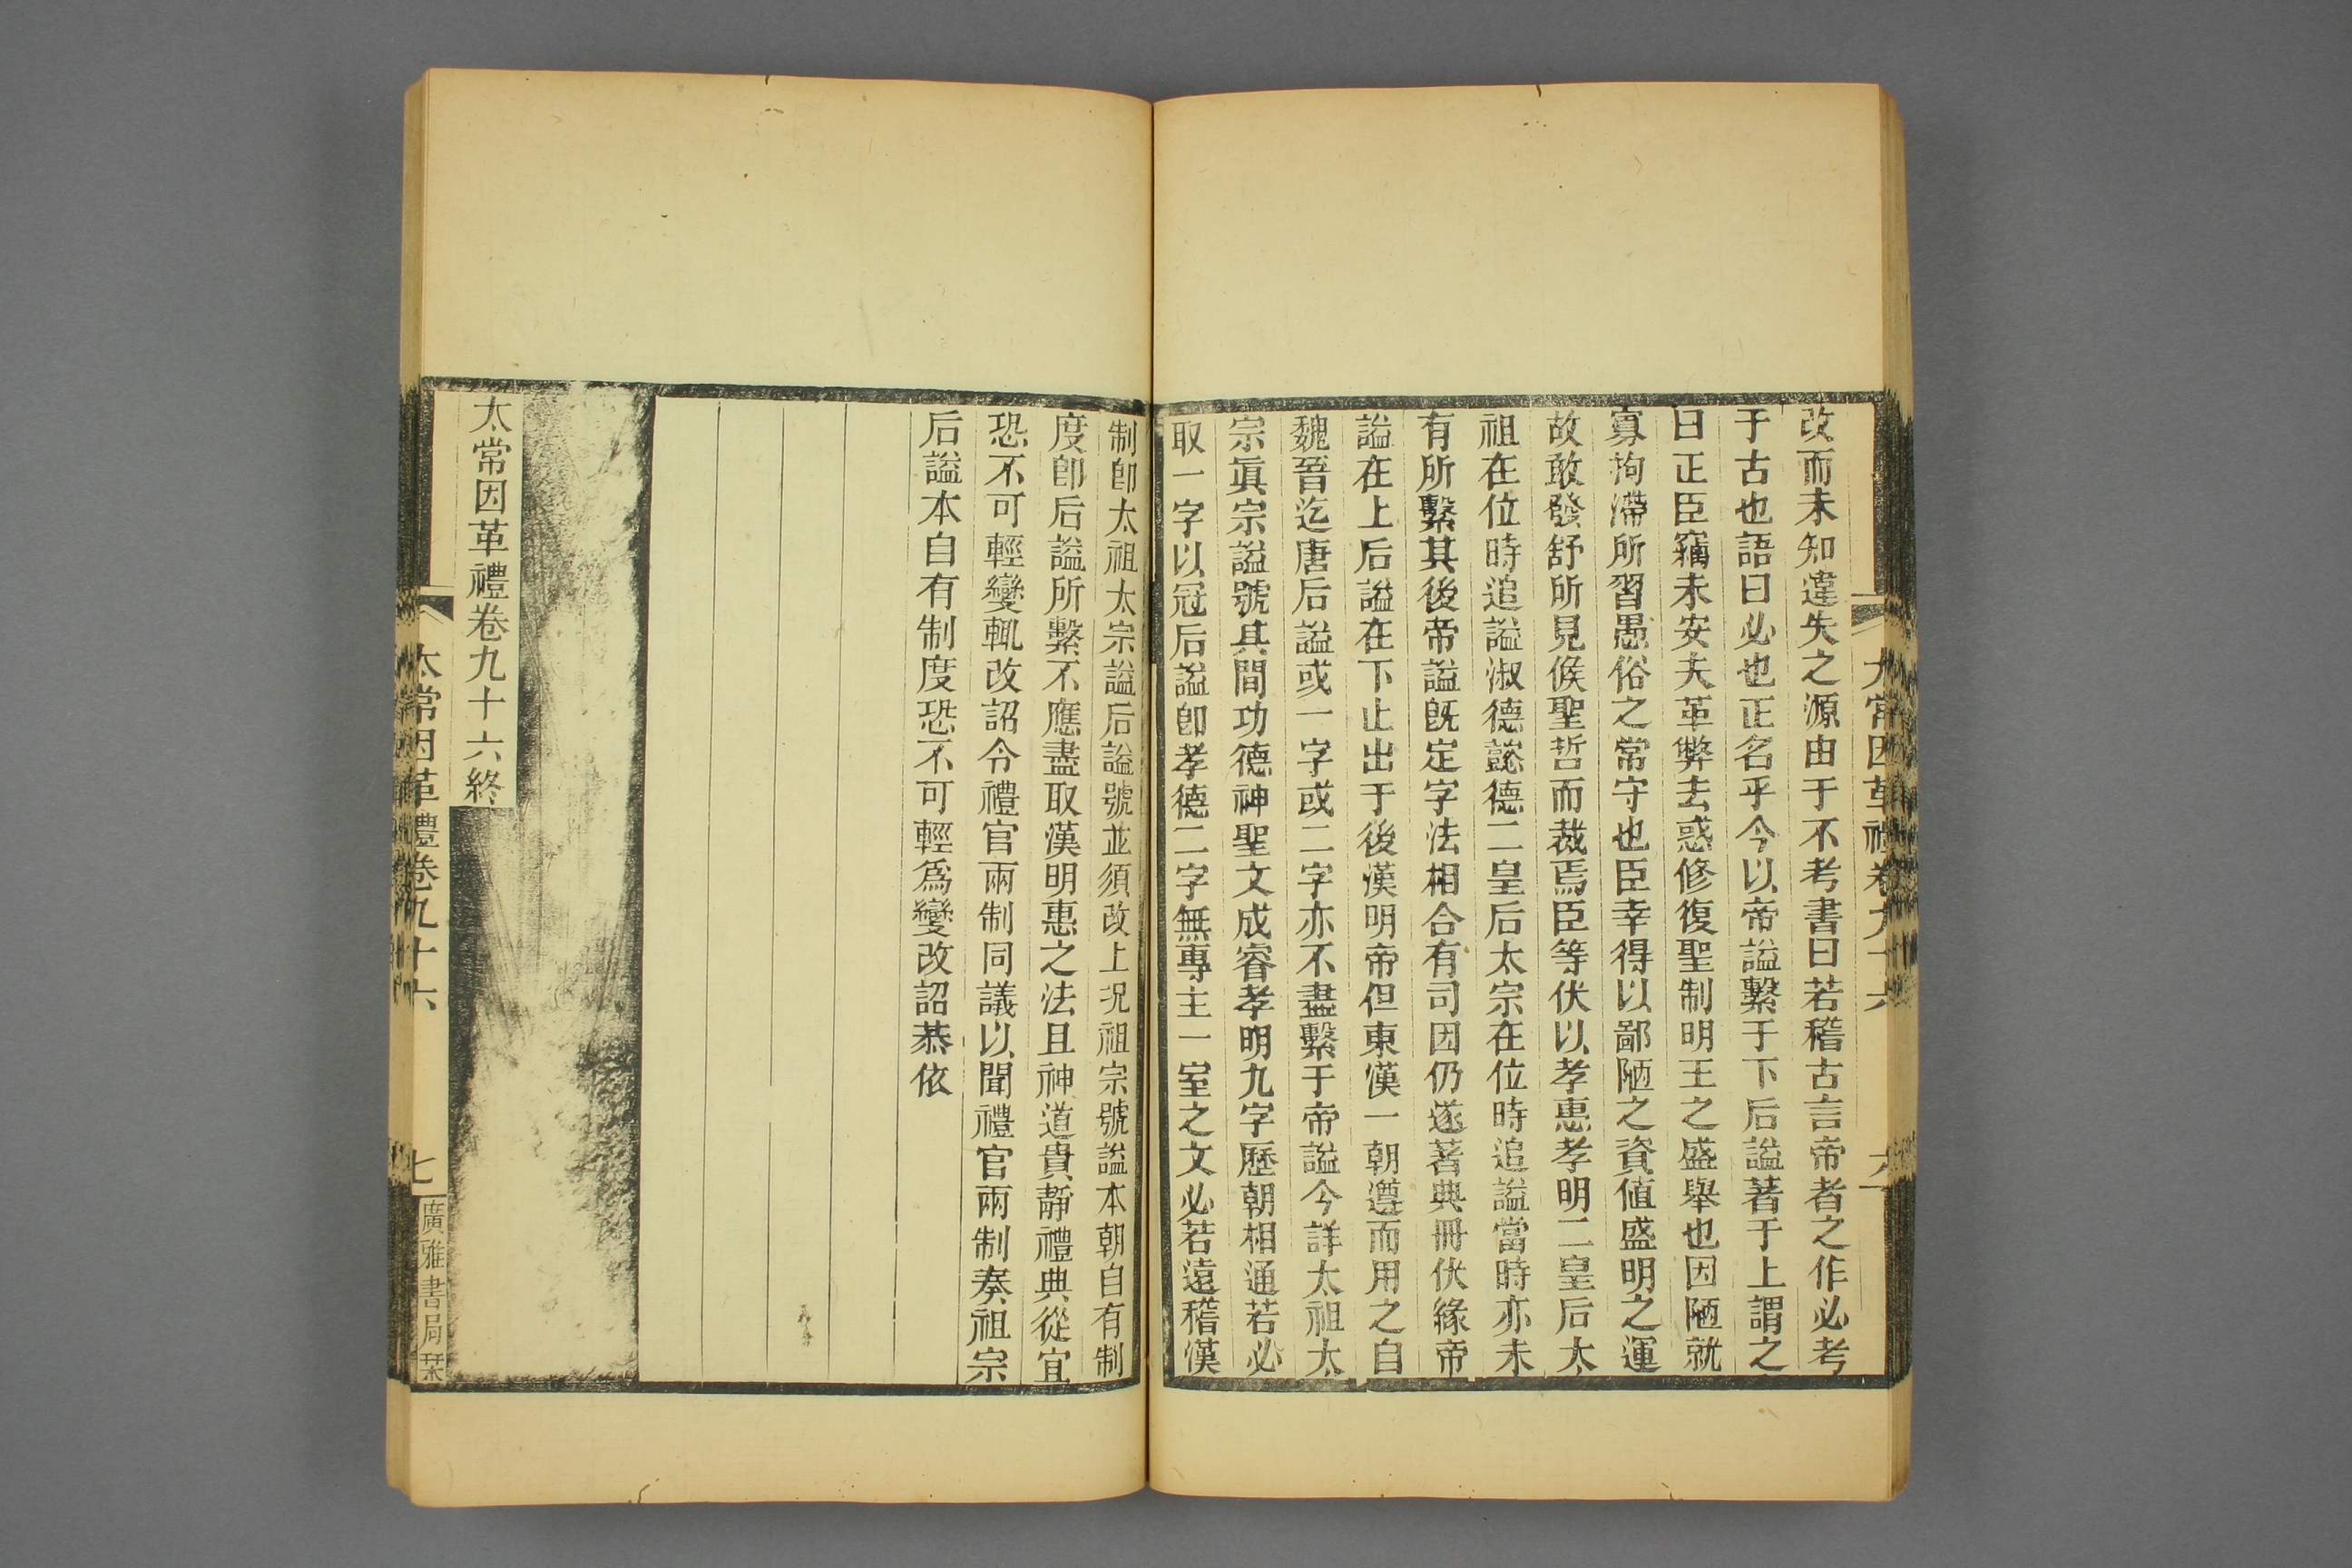 改而未知違失之源由于不考書曰若稽古言帝者之作必考
于古也語曰必也正名乎今以帝謚繫于下后謚著于上謂之
曰正臣竊未安夫革弊去惑修復聖制明王之盛舉也因陋就
寡拘滯所習愚俗之常守也臣幸得以鄙陋之資値盛明之運
故敢發舒所見候聖哲而裁焉臣等伏以孝惠孝明二皇后太
祖在位時追謚淑德懿德二皇后太宗在位時追謚當時亦未
有所繫其後帝謚旣定字法相合有司因仍遂著典冊伏緣帝
謚在上后謚在下止出于後漢明帝但東漢一朝遵而用之自
魏晉迄唐后謚或一字或二字亦不盡繫于帝謚今詳太祖太
宗眞宗謚號其間功德神聖文成睿孝明九字歷朝相通若必
取一字以冠后謚卽孝德二字無專主一室之文必若遠稽漢
太常因革禮卷九十六
六
制卽太祖太宗謚后謚號並須改上況祖宗號謚本朝自有制
度卽后謚所繫不應盡取漢明惠之法且神道貴靜禮典從宜
恐不可輕變輒改詔令禮官兩制同議以聞禮官兩制奏祖宗
后謚本自有制度恐不可輕爲變改詔恭依
太常因革禮卷九十六終
太常因革禮卷九十六
七
廣雅書局栞